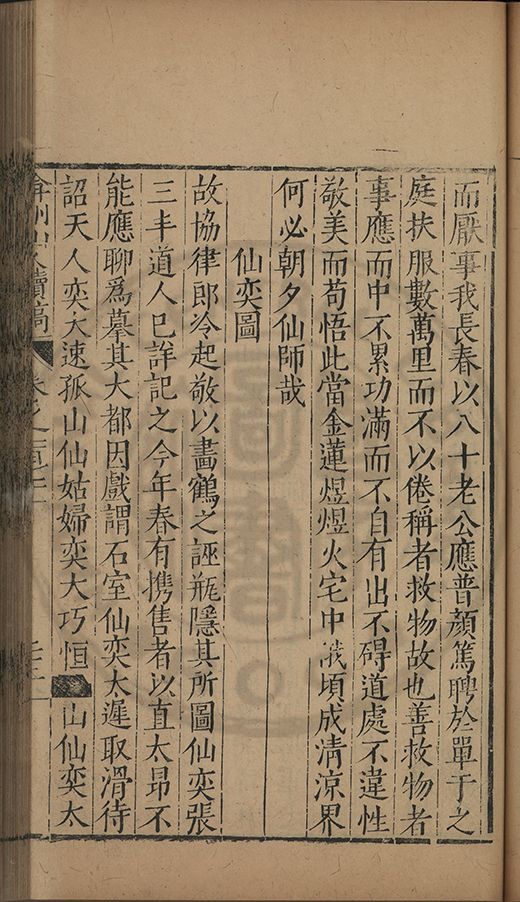 而厭事我長春以八十老公應普顏篤聘於單于之
庭扶服數萬里而不以倦稱者救物故也善救物者
事應而中不累功滿而不自有出不碍道處不違性
敬美而苟悟此當金蓮煜煜火宅中俄頃成淸凉界
何必朝夕仙師哉
仙奕圖
故協律郎冷起敬以畫鶴之誣瓶隱其所圖仙奕張
三丰道人已詳記之今年春有携售者以直太昂不
能應聊爲摹其大都因戲謂石室仙奕太遲取滑待
詔天人奕太速孤山仙姑婦奕大巧恒山仙奕太